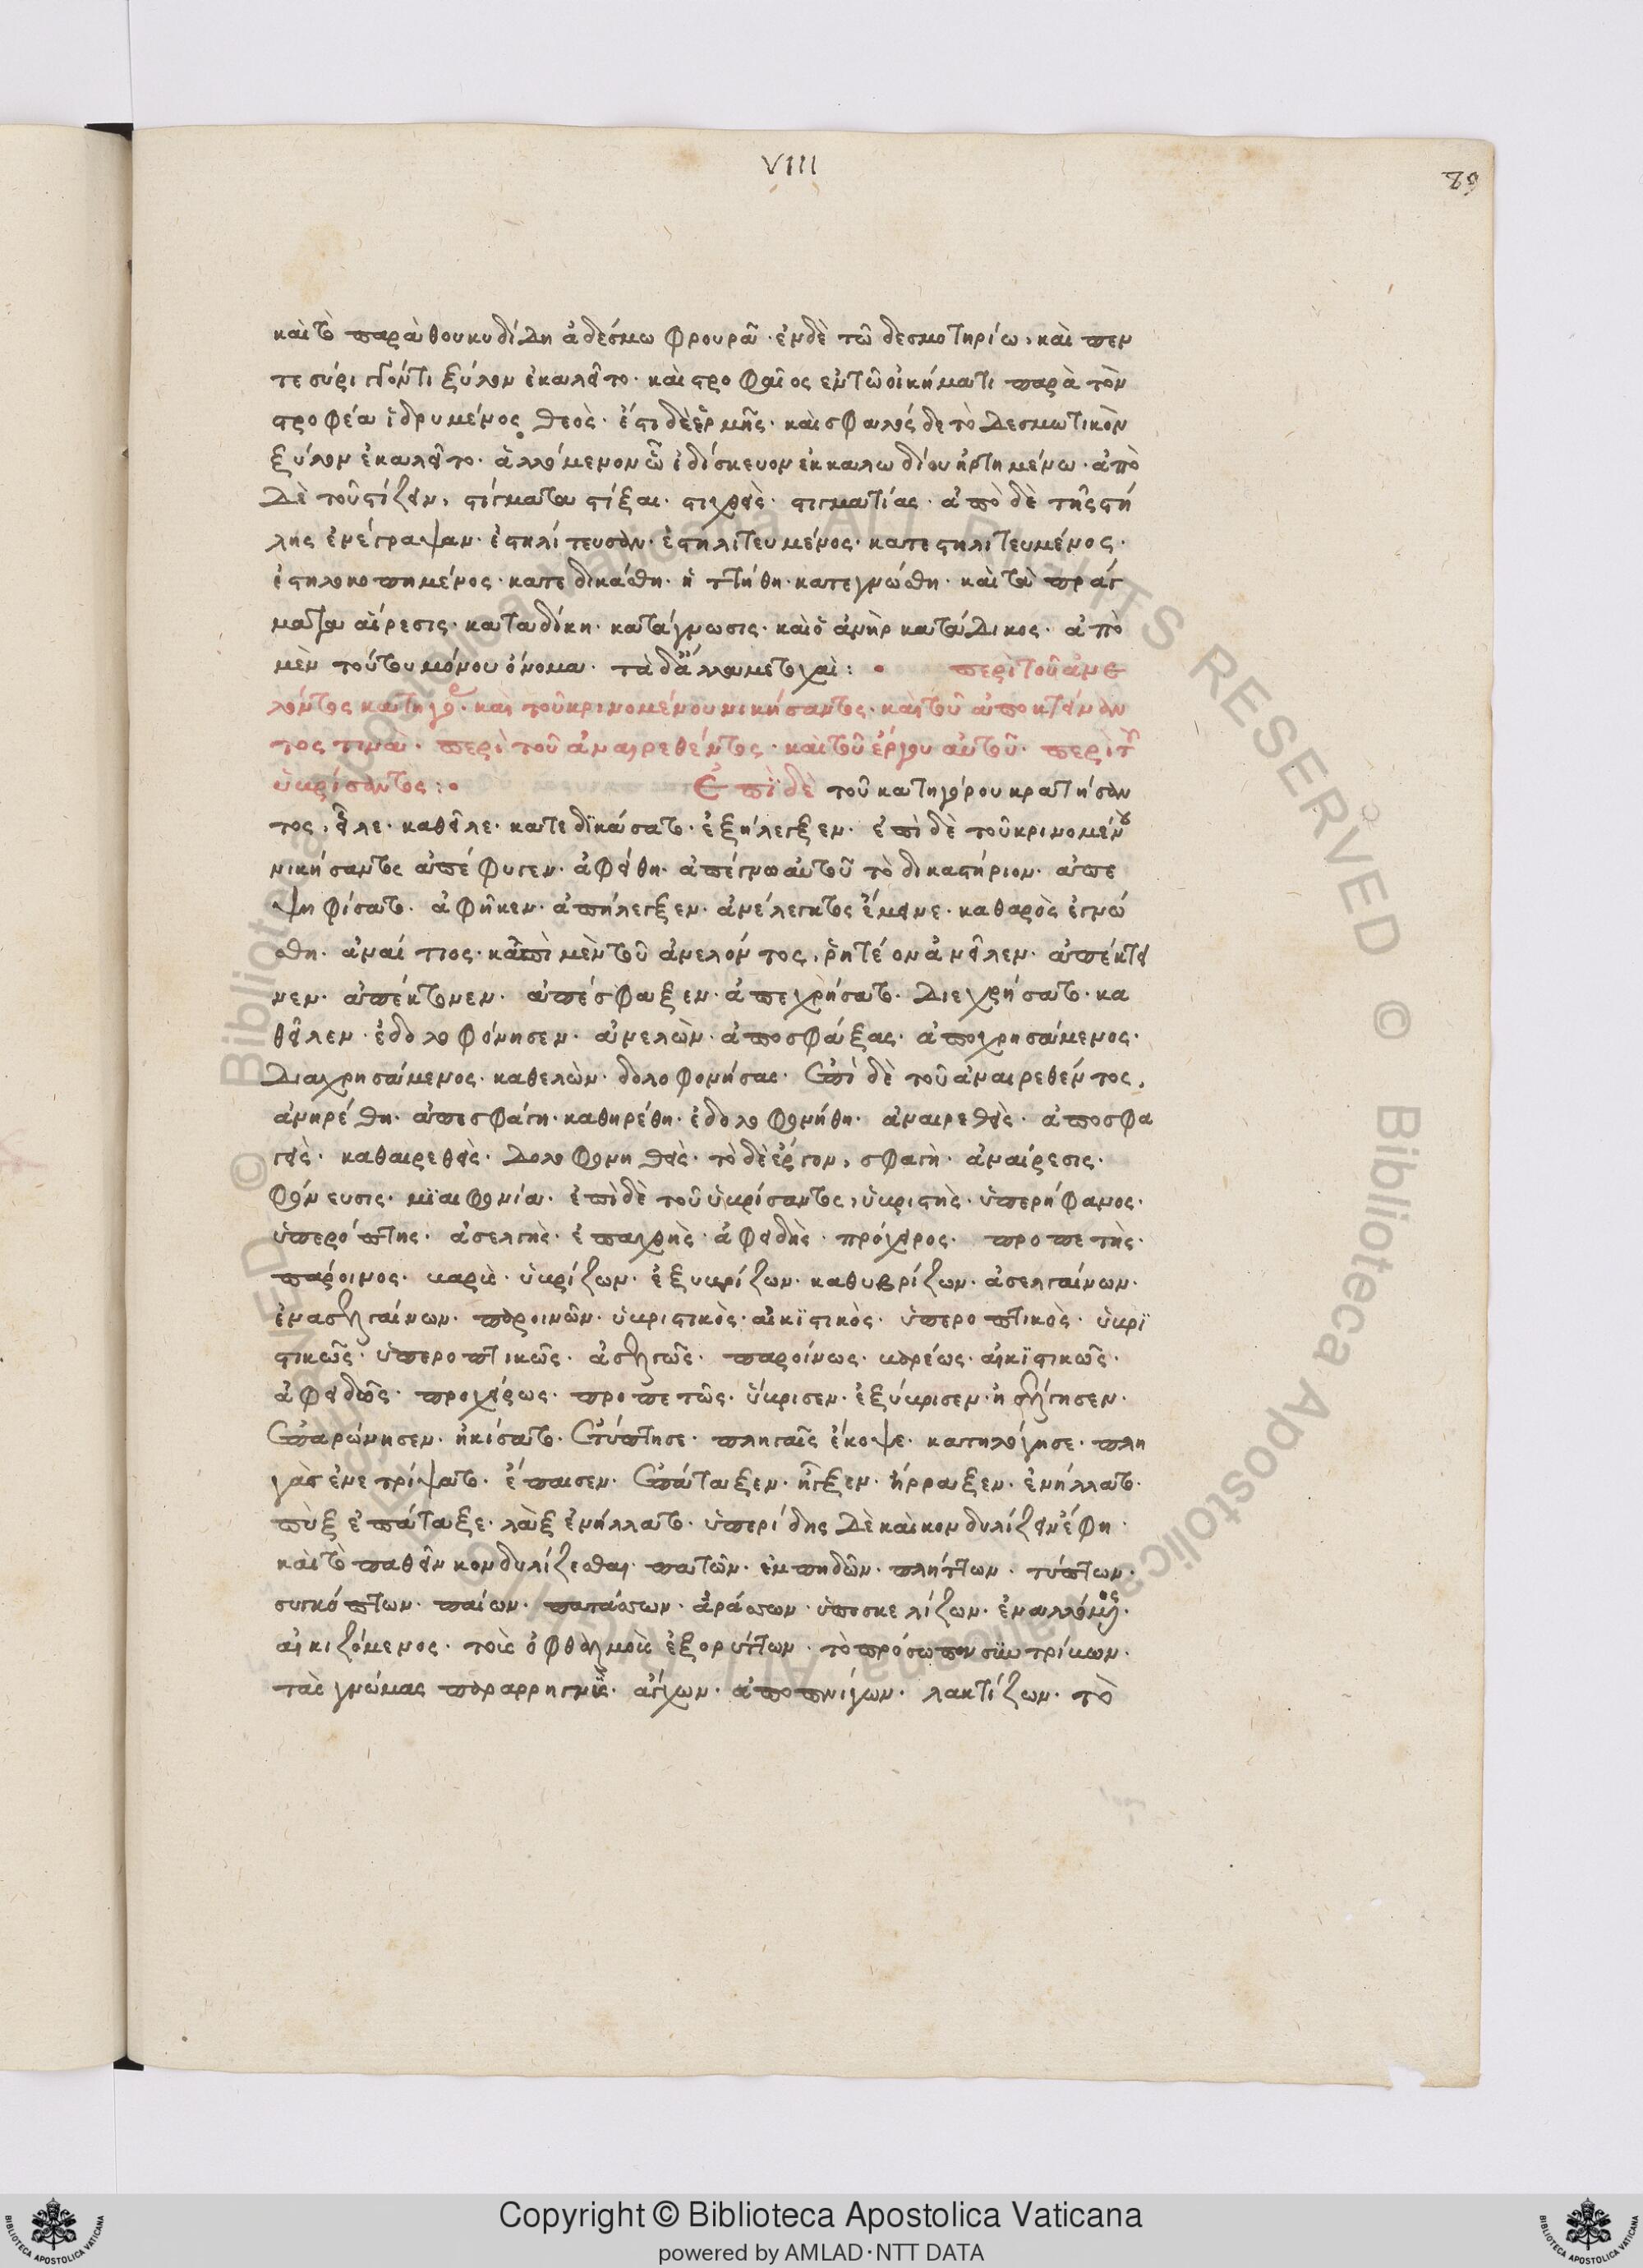 VIII
89
καὶ τὸ παρὰ θουκυδίδη ἀδέσμω φρουρᾶ· ἐν δὲ τῶ δεσμοτηρίω, καὶ πεν
τεσύριγγόντι ξύλον ἐκαλεῖτο· καὶ στροφαῖος ἐν τῶ οἰκήματι παρὰ τὸν
στροφέα ἱδρυμένος θεὸς· ἔστι δὲ ἑρμῆς· καὶ σφαλός δε τὸ δεσμωτικὸν
ξύλον ἐκαλεῖτο· ἀλλόμενον ὦ ἐδίσκευον ἐκ καλωδίου ἠρτημένω· ἀπὸ
δὲ τοῦ στίζειν, στίγματα στίξαι· στιχθεὶς· στιγματίας· ἀπὸ δὲ τῆς στή
λης ἐνέγραψαν· ἐστηλίτευσαν· ἐστηλιτευμένος· κατεστηλιτευμένος·
ἐστηλοκοπημένος· κατεδικάσθη· ἡττήθη· κατεγνώσθη· καὶ τὰ πράγ
ματα αἵρεσις· καταδίκη· κατάγνωσις· καὶ ὁ ἀνὴρ κατάδικος· ἀπὸ
μὲν τούτου μόνου ὄνομα· τὰ δ' ἄλλα μετοχαὶ: • περὶ τοῦ ἀνε
λόντος κατηγο· καὶ τοῦ κρινομένου νικήσαντος· καὶ τοῦ ἀποκτείναν
τος τινὰ· περὶ τοῦ ἀναιρεθέντος· καὶ τοῦ ἔργου αὐτοῦ· περὶ τοῦ
ὑβρίσαντος: • Ἐπὶ δὲ τοῦ κατηγόρου κρατήσαν
τος, εἷλε· καθεῖλε· κατεδϊκάσατο· ἐξήλεγξεν· ἐπὶ δὲ τοῦ κρινομένου
νικήσαντος ἀπέφυγεν· ἀφείθη· ἀπέγνω αὐτοῦ τὸ δικαστήριον· ἀπε
ψηφίσατο· ἀφῆκεν· ἀπήλεγξεν· ἀνέλεγκτος ἔμεινε· καθαρὸς ἐγνώ
σθη· ἀναίτιος· κἀπὶ μὲν τοῦ ἀνελόντος, ῥητέον ἀνεῖλεν· ἀπέκτει
νεν· ἀπέκτονεν· ἀπέσφαξεν· ἀπεχρήσατο· διεχρήσατο· κα
θεῖλεν· ἐδολοφόνησεν· ἀνελὼν· ἀποσφάξας· ἀποχρησάμενος·
διαχρησάμενος· καθελὼν· δολοφονήσας· ἐπὶ δὲ τοῦ ἀναιρεθέντος,
ἀνηρέθη· ἀπεσφάγη· καθηρέθη· ἐδολοφονήθη· ἀναιρεθεὶς· ἀποσφα
γεὶς· καθαιρεθεὶς· δολοφονηθεὶς· τὸ δὲ ἔργον, σφαγὴ· ἀναίρεσις·
φόνευσις· μϊαιφονία· ἐπὶ δὲ τοῦ ὑβρίσαντος, ὑβριστὴς· ὑπερήφανος·
ὑπερόπτης· ἀσελγὴς· ἐπαχθὴς· ἀφειδὴς· πρόχειρος· προπετὴς·
πάροινος· βαρὺς· ὑβρίζων· ἐξυβρίζων· καθυβρίζων· ἀσελγαίνων·
ἐνασελγαίνων· παροινῶν· ὑβριστικὸς· αἰκϊστικὸς· ὑπεροπτικὸς· ὑβρϊ
στικῶς· ὑπεροπτικῶς· ἀσελγῶς· παροίνως· βαρέως· αἰκϊστικῶς·
ἀφειδῶς· προχείρως· προπετῶς· ὕβρισεν· ἐξύβρισεν· ἠσέλγησεν·
ἐπαρώνησεν· ἠκίσατο· ἐτύπτησε· πληγαῖς ἔκοψε· κατηλόγησε· πλη
γὰς ἐνετρίψατο· ἔπαισεν· ἐπάταξεν· ἦγξεν· ἥρραξεν· ἐνήλλατο·
πὺξ ἐπάταξε· λὰξ ἐνήλλατο· ὑπερίδης δὲ καὶ κονδυλίζειν ἔφη·
καὶ τὸ παθεῖν κονδυλίζεσθαι· πατῶν· ἐμπηδῶν· πλήττων· τύπτων·
συγκόπτων· παίων· πατάσσων· ἀράσσων· ὑποσκελίζων· ἐναλλόμενος·
αἰκιζόμενος· τοὺς ὀφθαλμοὺς ἐξορύττων· τὸ πρόσωπον συντρίβων·
τὰς γνώμας παραρρηγνὺς· ἄγχων· ἀποπνίγων· λακτίζων· τὸ
© Biblioteca Apostolica Vaticana ALL RIGHTS RESERVED
Copyright © Biblioteca Apostolica Vaticana
powered by AMLAD·NTT DATA
BIBLIOTECA APOSTOLICA VATICANA